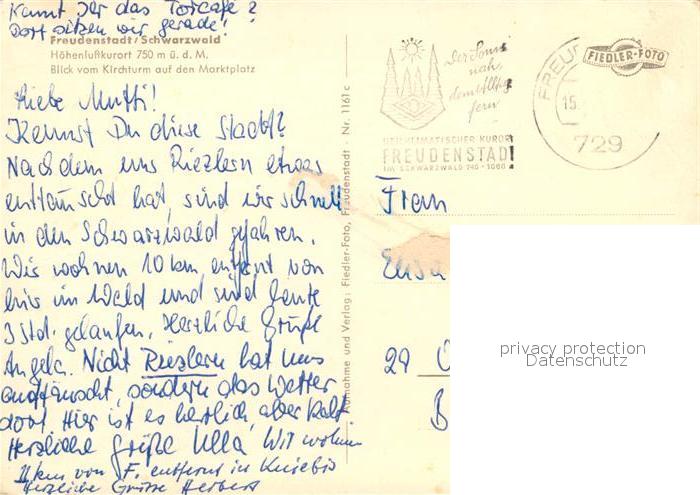 Kennt Ihr das Torcafé?
Dort sitzen wir gerade!
Freudenstadt/Schwarzwald
Höhenluftkurort 750 m ü. d. M.
Blick vom Kirchturm auf den Marktplatz
Liebe Mutti!
Kennst Du diese Stadt?
Nachdem uns Riezlern etwas
enttäuscht hat, sind wir schnell
in den Schwarzwald gefahren.
Wir wohnen 10 km entfernt von
hier im Wald und sind heute
3 Std. gelaufen. Herzliche Grüße
Angela. Nicht Riezlern hat uns
enttäuscht, sondern das Wetter
dort. Hier ist es herrlich, aber kalt.
Herzliche Grüße Ulla Wir wohnen
11 km von F. entfernt in Kniebis
Herzliche Grüsse Herbert
Aufnahme und Verlag: Fiedler-Foto, Freudenstadt · Nr. 1161 c
Der Sonne
nah,
dem Alltag
fern
HEILKLIMATISCHER KURORT
FREUDENSTADT
IM SCHWARZWALD 740-1000
FREU
15.
729
FIEDLER-FOTO
Frau
Elisa
29
B
privacy protection
Datenschutz